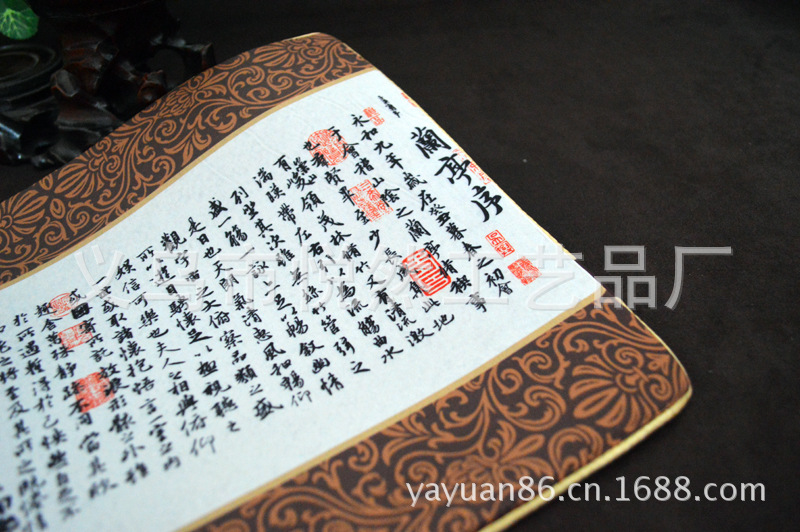 蘭亭序
永和九年歲在癸丑暮春之初會
于會稽山陰之蘭亭脩稧事
也羣賢畢至少長咸集此地
有崇山峻領茂林脩竹又有清流激
湍暎帶左右引以為流觴曲水
列坐其次雖無絲竹管弦之
盛一觴一詠亦足以暢敘幽情
是日也天朗氣清惠風和暢仰
觀宇宙之大俯察品類之盛
所以遊目騁懷足以極視聽之
娛信可樂也夫人之相與俯仰
一世或取諸懷抱悟言一室之內
或因寄所託放浪形骸之外雖
趣舍萬殊靜躁不同當其欣
於所遇暫得於己快然自足不
老之將至及其所之既惓情
义乌市悦然工艺品厂
yayuan86.cn.1688.com